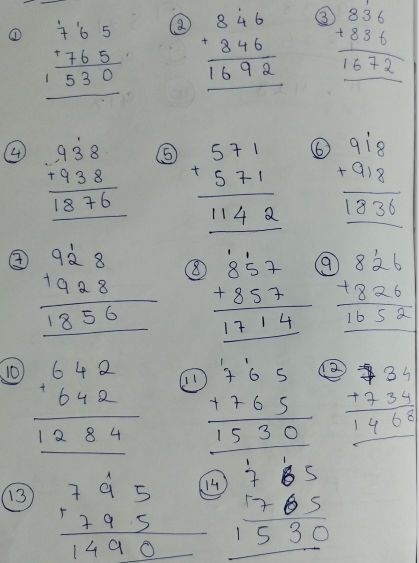 ① 765
+765
1530
② 846
+846
1692
③ 836
+836
1672
④ 938
+938
1876
⑤ 571
+571
1142
⑥ 918
+918
1836
⑦ 928
+928
1856
⑧ 857
+857
1714
⑨ 826
+826
1652
⑩ 642
+642
1284
⑪ 765
+765
1530
⑫ 734
+734
1468
⑬ 795
+795
1490
⑭ 765
+765
1530